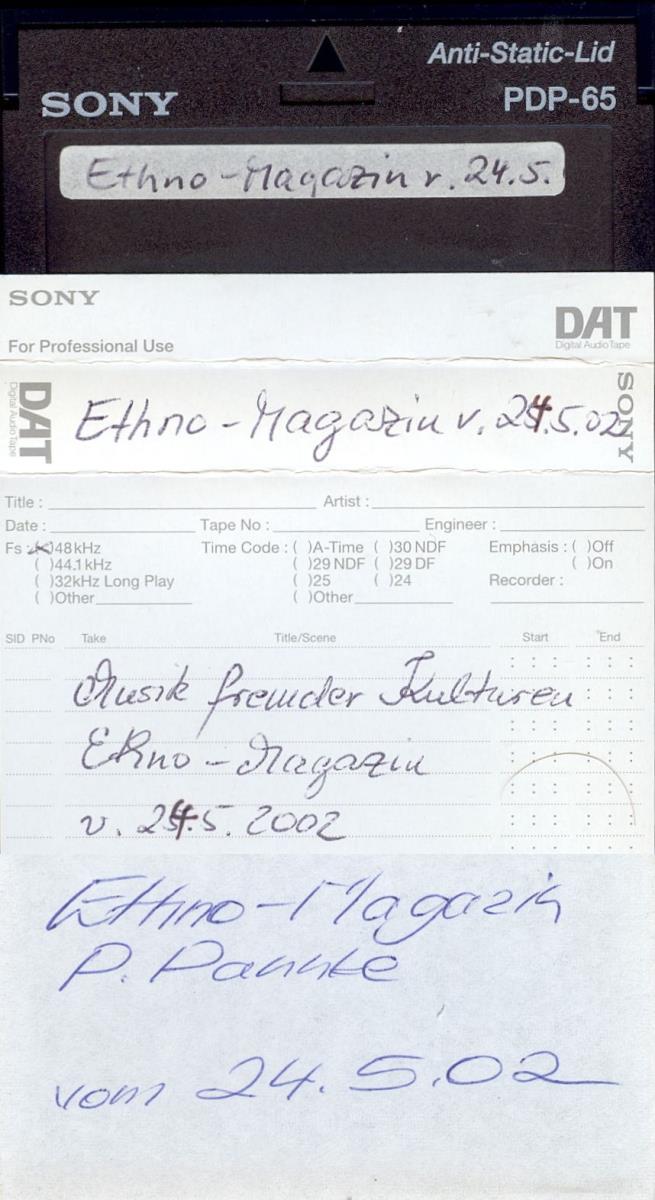 Anti-Static-Lid
SONY PDP-65
Ethno-Magazin v. 24.5.
SONY
DAT
Digital Audio Tape
For Professional Use
DAT
Digital Audio Tape
Ethno-Magazin v. 24.5.02
SONY
Title : Artist :
Date : Tape No : Engineer :
Fs : (x)48kHz Time Code : ( )A-Time ( )30 NDF Emphasis : ( )Off
( )44.1kHz ( )29 NDF ( )29 DF ( )On
( )32kHz Long Play ( )25 ( )24 Recorder :
( )Other ( )Other
SID PNo Take Title/Scene Start End
Musik fremder Kulturen
Ethno-Magazin
v. 24.5. 2002
Ethno-Magazin
P. Pannke
vom 24.5.02